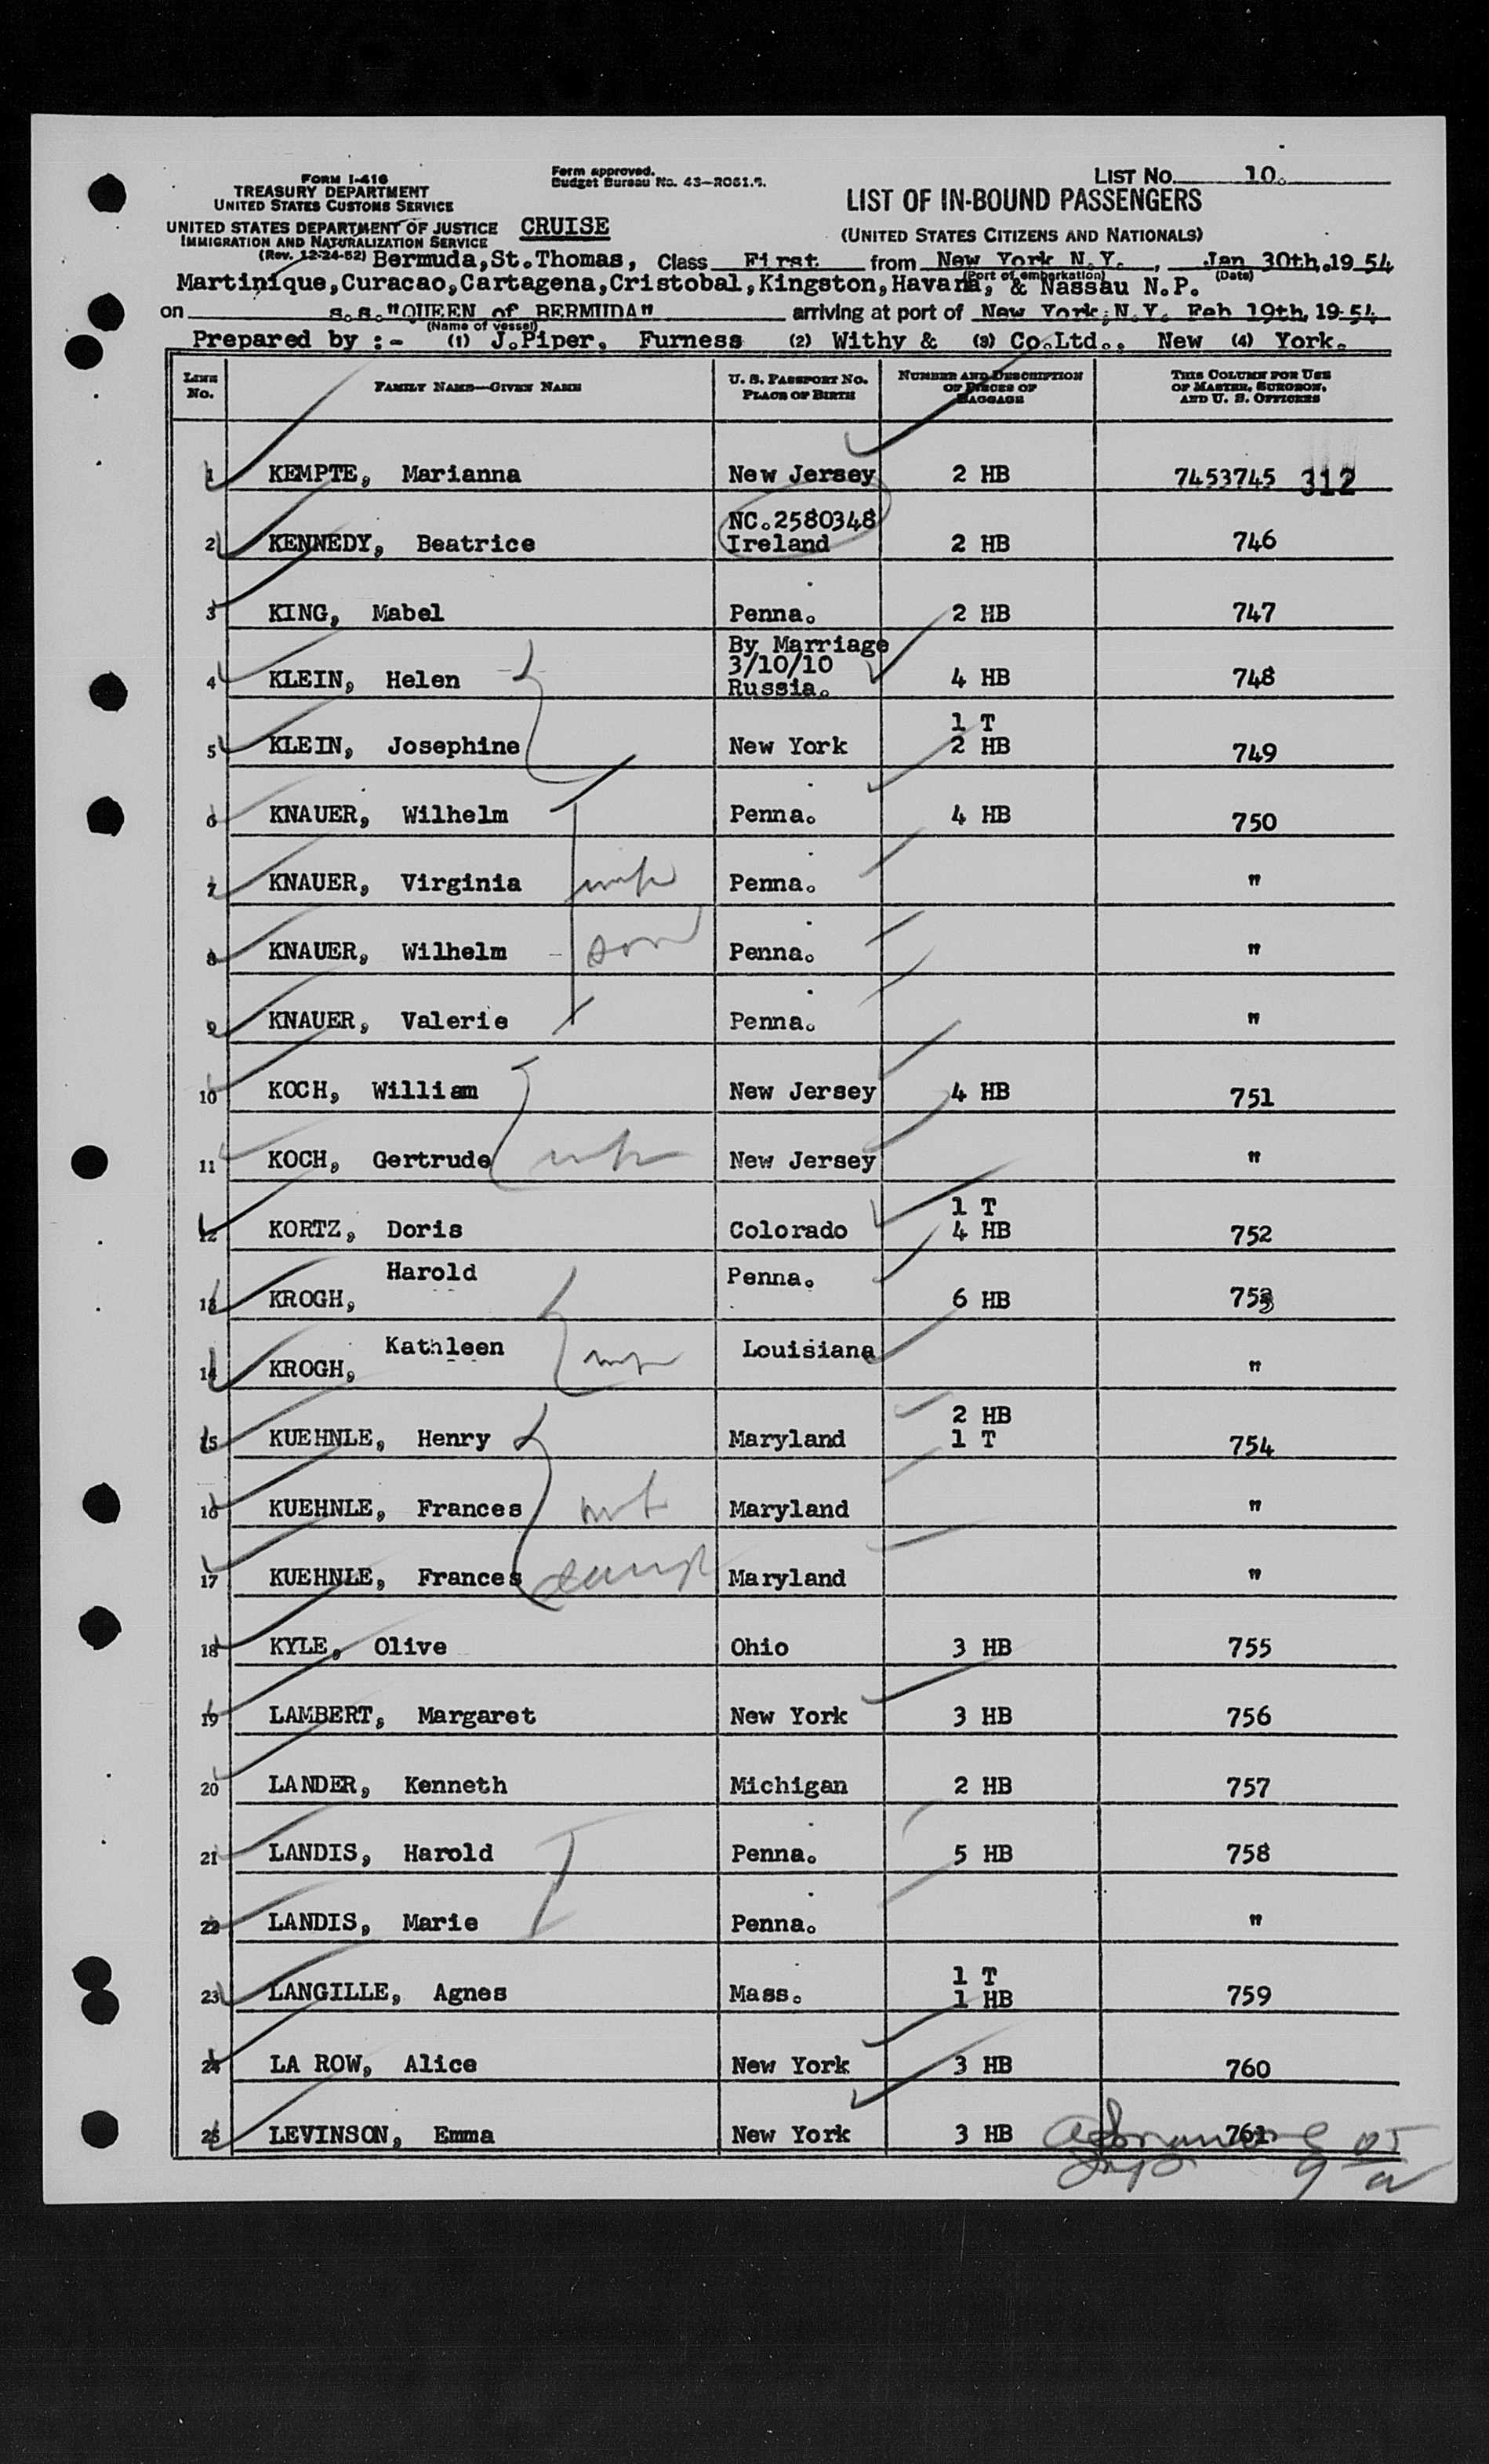 FORM I-416
TREASURY DEPARTMENT
UNITED STATES CUSTOMS SERVICE
UNITED STATES DEPARTMENT OF JUSTICE
IMMIGRATION AND NATURALIZATION SERVICE
(Rev. 12-24-52)
Form approved.
Budget Bureau No. 43-R061.
CRUISE
LIST No. 10.
LIST OF IN-BOUND PASSENGERS
(UNITED STATES CITIZENS AND NATIONALS)
Bermuda, St. Thomas, Class First from New York N.Y., Jan 30th. 1954
(Port of embarkation) (Date)
Martinique, Curacao, Cartagena, Cristobal, Kingston, Havana, & Nassau N.P.
on s.s. "QUEEN of BERMUDA" arriving at port of New York, N.Y. Feb 19th, 19 54
(Name of vessel)
Prepared by :- (1) J.Piper, Furness (2) Withy & (3) Co.Ltd., New (4) York.
LINE No. FAMILY NAME—GIVEN NAME U. S. PASSPORT NO. PLACE OF BIRTH NUMBER AND DESCRIPTION OF PIECES OF BAGGAGE THIS COLUMN FOR USE OF MASTER, SURGEON, AND U. S. OFFICERS
1 KEMPTE, Marianna New Jersey 2 HB 7453745 312
NC.2580348
2 KENNEDY, Beatrice Ireland 2 HB 746
3 KING, Mabel Penna. 2 HB 747
By Marriage
3/10/10
4 KLEIN, Helen Russia. 4 HB 748
1 T
5 KLEIN, Josephine New York 2 HB 749
6 KNAUER, Wilhelm Penna. 4 HB 750
7 KNAUER, Virginia wife Penna. "
8 KNAUER, Wilhelm son Penna. "
9 KNAUER, Valerie Penna. "
10 KOCH, William New Jersey 4 HB 751
11 KOCH, Gertrude wife New Jersey "
1 T
12 KORTZ, Doris Colorado 4 HB 752
Harold Penna.
13 KROGH, 6 HB 753
Kathleen wife Louisiana
14 KROGH, "
2 HB
15 KUEHNLE, Henry Maryland 1 T 754
16 KUEHNLE, Frances Maryland "
17 KUEHNLE, Frances Maryland "
18 KYLE, Olive Ohio 3 HB 755
19 LAMBERT, Margaret New York 3 HB 756
20 LANDER, Kenneth Michigan 2 HB 757
21 LANDIS, Harold Penna. 5 HB 758
22 LANDIS, Marie Penna. "
1 T
23 LANGILLE, Agnes Mass. 1 HB 759
24 LA ROW, Alice New York 3 HB 760
25 LEVINSON, Emma New York 3 HB 761